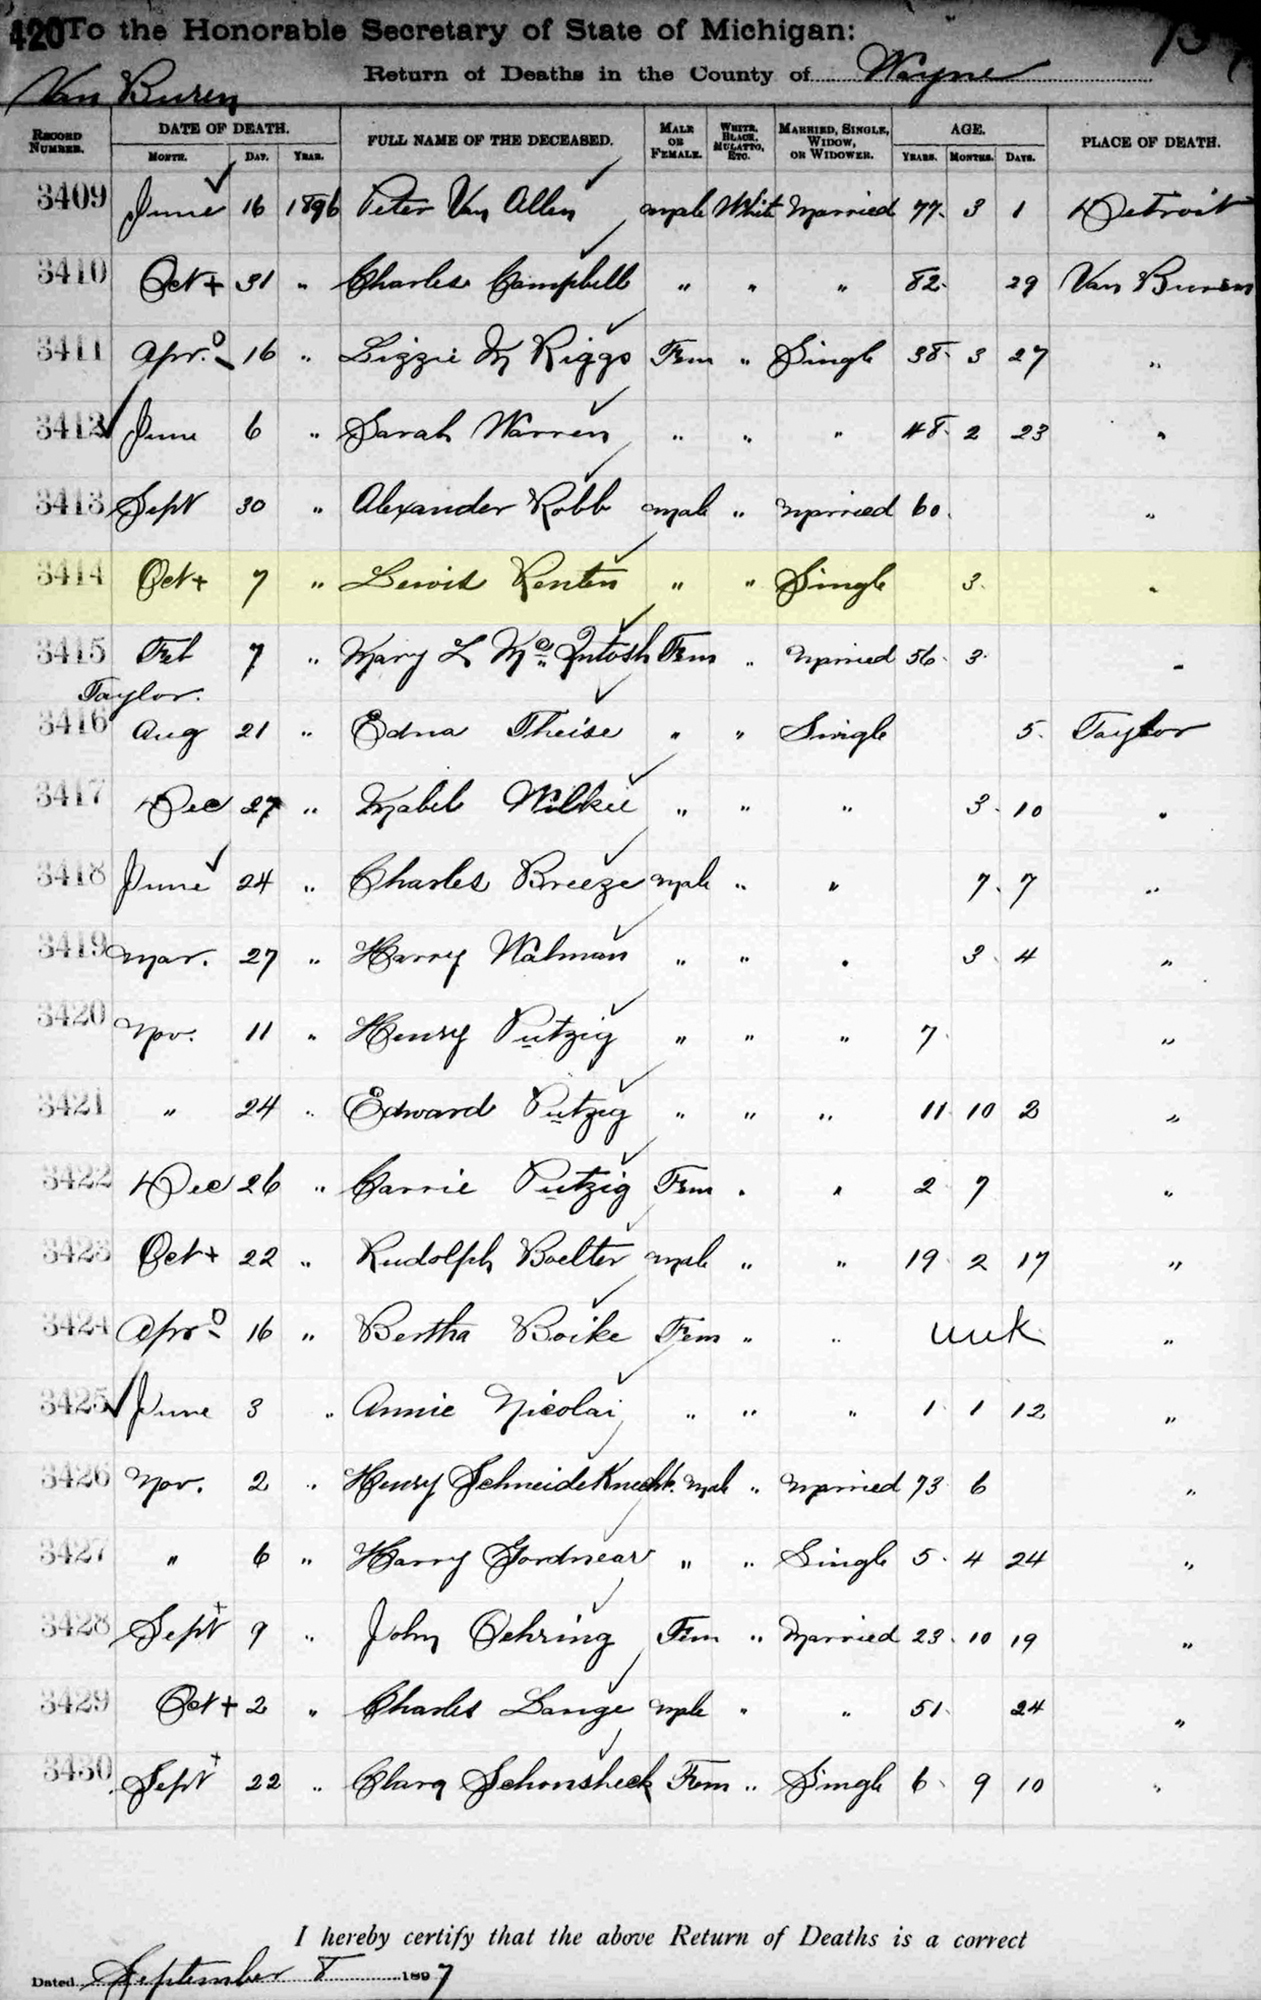 420 To the Honorable Secretary of State of Michigan:
Return of Deaths in the County of Wayne
Van Buren
RECORD NUMBER. DATE OF DEATH. MONTH. DAY. YEAR. FULL NAME OF THE DECEASED. MALE OR FEMALE. WHITE, BLACK, MULATTO, ETC. MARRIED, SINGLE, WIDOW, OR WIDOWER. AGE. YEARS. MONTHS. DAYS. PLACE OF DEATH.
3409 June 16 1896 Peter Van Allen male White Married 77 3 1 Detroit
3410 Oct 31 " Charles Campbell " " " 82 29 Van Buren
3411 Apr. 16 " Lizzie M Riggs Fem " Single 38 3 27 "
3412 June 6 " Sarah Warren " " " 48 2 23 "
3413 Sept 30 " Alexander Robb male " Married 60 "
3414 Oct 7 " Lewis Renten " " Single 3 "
3415 Feb 7 " Mary L McIntosh Fem " Married 56 3 "
Taylor.
3416 Aug 21 " Edna Theise " " Single 5 Taylor
3417 Dec 27 " Mabel Wilkie " " " 3 10 "
3418 June 24 " Charles Breeze male " " 7 7 "
3419 Mar. 27 " Harry Walman " " " 3 4 "
3420 Nov. 11 " Henry Putzig " " " 7 "
3421 " 24 " Edward Putzig " " " 11 10 2 "
3422 Dec 26 " Carrie Putzig Fem " " 2 7 "
3423 Oct 22 " Rudolph Boelter male " " 19 2 17 "
3424 Apr 16 " Bertha Boike Fem " " unk "
3425 June 3 " Annie Nicolai " " " 1 1 12 "
3426 Nov. 2 " Henry Schneideknecht. male " Married 73 6 "
3427 " 6 " Harry Gordnear " " Single 5 4 24 "
3428 Sept 9 " John Oehring Fem " Married 23 10 19 "
3429 Oct 2 " Charles Lange male " " 51 24 "
3430 Sept 22 " Clara Schonsheck Fem " Single 6 9 10 "
I hereby certify that the above Return of Deaths is a correct
Dated September 8 1897